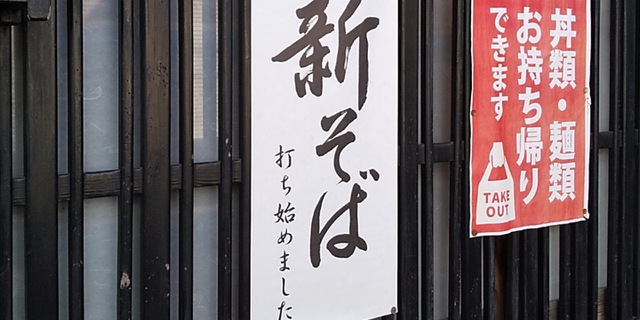 新そば
打ち始めました
丼類・麺類
お持ち帰り
できます
TAKE
OUT